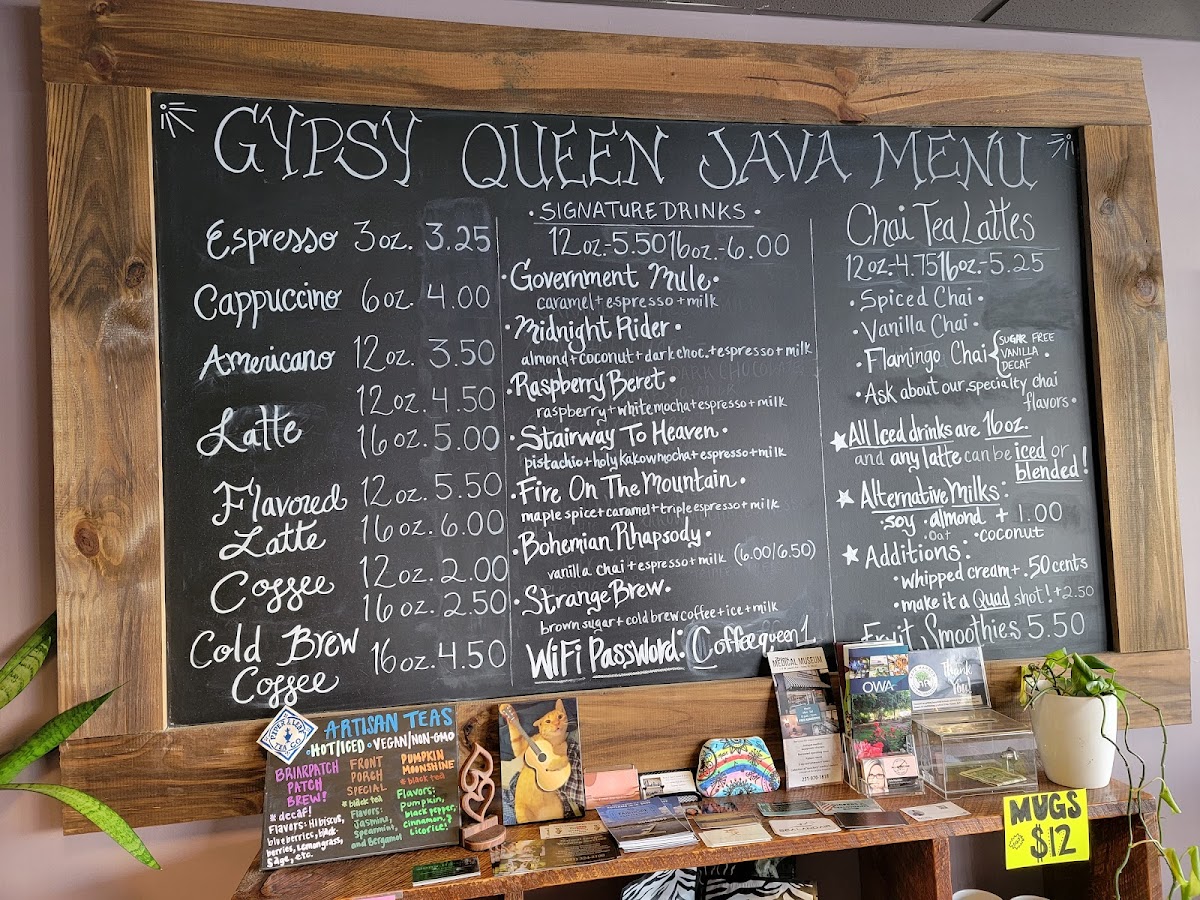 GYPSY QUEEN JAVA MENU
Espresso 3oz. 3.25
Cappuccino 6oz. 4.00
Americano 12oz. 3.50
Latte
12oz. 4.50
16oz. 5.00
Flavored
Latte
12oz. 5.50
16oz. 6.00
Coffee
12oz. 2.00
16oz. 2.50
Cold Brew
Coffee
16oz. 4.50
• SIGNATURE DRINKS •
12oz-5.50 16oz.-6.00
• Government Mule •
caramel + espresso + milk
• Midnight Rider •
almond + coconut + dark choc. + espresso + milk
• Raspberry Beret •
raspberry + white mocha + espresso + milk
• Stairway To Heaven •
pistachio + holy kakow mocha + espresso + milk
• Fire On The Mountain •
maple spice + caramel + triple espresso + milk
• Bohemian Rhapsody •
vanilla chai + espresso + milk (6.00/6.50)
• Strange Brew •
brown sugar + cold brew coffee + ice + milk
WiFi Password: Coffeequeen1
Chai Tea Lattes
12oz.-4.75 16oz.-5.25
• Spiced Chai •
• Vanilla Chai •
• Flamingo Chai { SUGAR FREE
VANILLA
DECAF •
• Ask about our specialty chai
flavors •
All Iced drinks are 16oz.
and any latte can be iced or
blended!
Alternative Milks:
soy • almond + 1.00
• Oat • coconut
Additions:
• whipped cream + .50 cents
• make it a Quad shot! + 2.50
Fruit Smoothies 5.50
PIPER & LEAF
TEA CO.
ARTISAN TEAS
• HOT/ICED • VEGAN/NON-GMO
BRIARPATCH
PATCH
BREW!
* decaf!
Flavors: Hibiscus,
blueberries, black-
berries, Lemongrass,
Sage, etc.
FRONT
PORCH
SPECIAL
* black tea
Flavors
Jasmine,
Spearmint,
and Bergamot
PUMPKIN
MOONSHINE
* black tea
Flavors:
Pumpkin,
black pepper,
cinnamon, &
licorice!
MEDICAL MUSEUM
OWA
Thank
You!
MUGS
$12